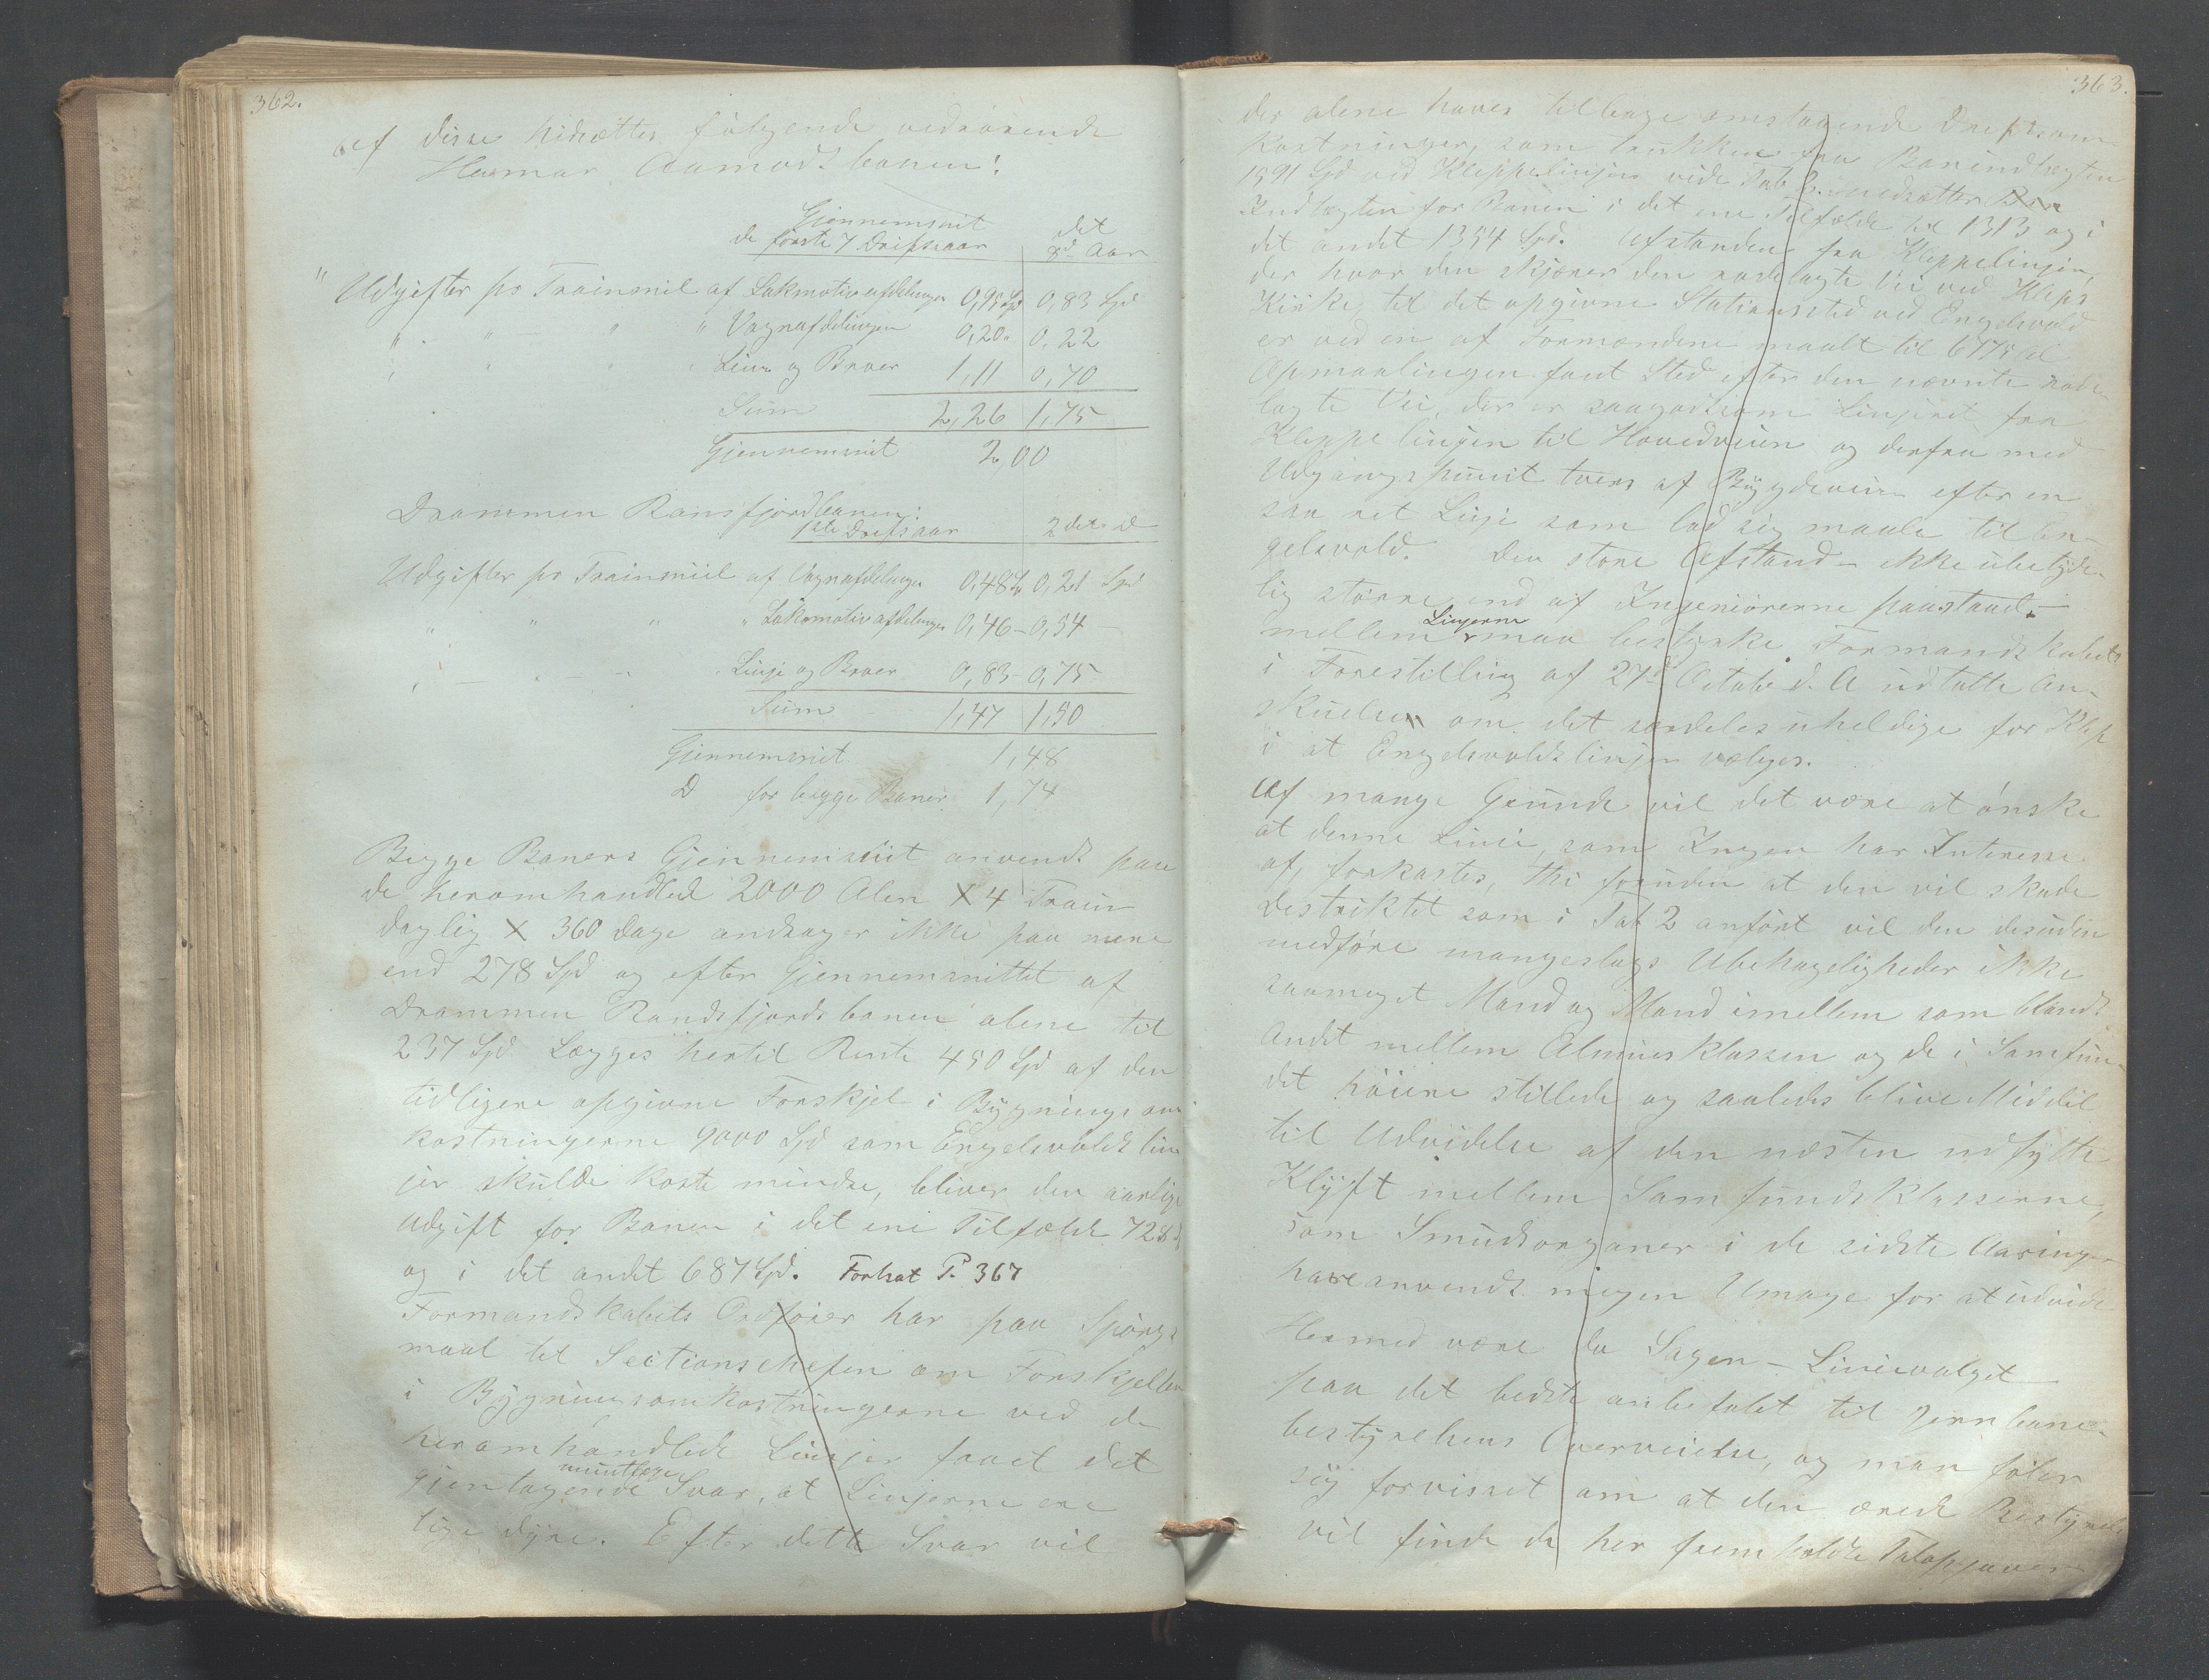 362.
af disse hidsættes følgende vedrørende
Hamar Aamodtbanen:
Gjennemsnit det
de første 7 Driftsaar 8d Aar
" Udgifter pr Trainmil af Lokmotivafdelingen 0,95 Spd 0,83 Spd
" - " - " " Vagnafdelingen 0,20 " 0,22
" " " " Linie og Broer 1,11 0,70
Sum 2,26 1,75
Gjennemsnit 2,00
Drammen Ransfjordbanen:
1ste Driftsaar 2det D
Udgifter pr Trainmiil af Vagnafdelingen 0,48 Sp 0,21 Spd
" " " " Lokomotivafdelingen 0,46 - 0,54 -
" - " - - " Linje og Broer 0,83 - 0,75 -
Sum 1,47 1,50
Gjennemsnit 1,48
D for begge Baner 1,74
Begge Baners Gjennemsnit anvendt paa
de heromhandlede 2000 Alen X 4 Train
daglig X 360 Dage andrager ikke paa mere
end 278 Spd og efter Gjennemsnittet af
Drammen Randsfjordsbanen alene til
237 Spd Lægges hertil Rente 450 Spd af den
tidligere opgivne Forskjel i Bygningsom
kostningerne 9000 Spd som Engelsvoldslin
jer skulde koste mindre, bliver den aarlige
Udgift for Banen i det ene Tilfælde 728
og i det andet 687 Spd. Forhat P. 367
Formandskabets Ordfører har paa Spørgs
maal til Sectionschefen om Forskjellen
i Bygningsomkostningerne ved de
heromhandlede Linjer faaet det
mundtlige
gjentagende Svar, at Linjerne ere
lige dyre. Efter dette Svar vil
363.
der alene haves tilbage omstaaende Driftsom
kostninger, som trukken fra Banindtægten
1591 Spd ved Kleppelinjen vide Tab 2. nedsætter Ban
Indtægten for Banen i det ene Tilfælde til 1313 og i
det andet 1354 Spd. Afstanden fra Kleppelinjen,
der hvor den skjærer den rodelagte Vei ved Kleps
Kirke, til det opgivne Stationssted ved Engelsvold
er ved en af Formændene maalt til 6775 Al
Opmaalingen fant Sted efter den nævnte rode
lagte Vei, der er saagodtsom Linjeret fra
Kleppelinjen til Hovedveien og derfra med
Udgangspunt tvers af Bygdeveien efter en
saa ret Linje som lod sig maale til En-
gelsvold. Den store Afstand - ikke ubetyde-
lig større end af Ingeniørerne paastaaet. -
Linjerne
mellem maa bestyrke Formandskabets
i Forestilling af 27d October d. A udtalte An-
skuelse om det særdeles uheldige for Klep
i at Engelsvoldslinjen vælges.
Af mange Grunde vil det være at ønske
at denne Linie, som Ingen har Interesse
af, forkastes, thi foruden at den vil skade
Destriktet som i Tab 2 anført vil den desuden
medføre mangeslags Ubehageligheder ikke
saameget Mand og Mand imellem som blandt
Andet mellem Almuesklassen og de i Samfun-
det høiere stillede og saaledes blive Middel
til Udvidelse af den næsten udfyldte
Klyft mellem Samfundsklasserne,
som Smudsorganer i de sidste Aaringer
have anvendt megen Umage for at udvide
Hermed være da Sagen - Linievalget -
paa det bedste anbefalet til Jernbane-
bestyrelsens Overveielse, og man føler
sig forvisset om at den ærede Bestyrelse
vil finde de her fremholdte Talopgaver